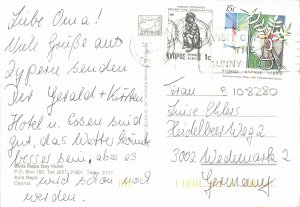 Liebe Oma!
Viele Grüße aus
Zypern senden
Dir Gerald + Kirsten
Hotel u. Essen sind
gut, das Wetter könnte
besser sein, aber es
Bella Napa Bay Hotel
P.O. Box 192, Tel. (037) 21601, Telex 5177
Ayia Napa
wird schon noch
werden.
1c
15c
Frau B 108280
Luise Ehlers
Heidelberg Weg 2
3002 Wedemark 2
Germany